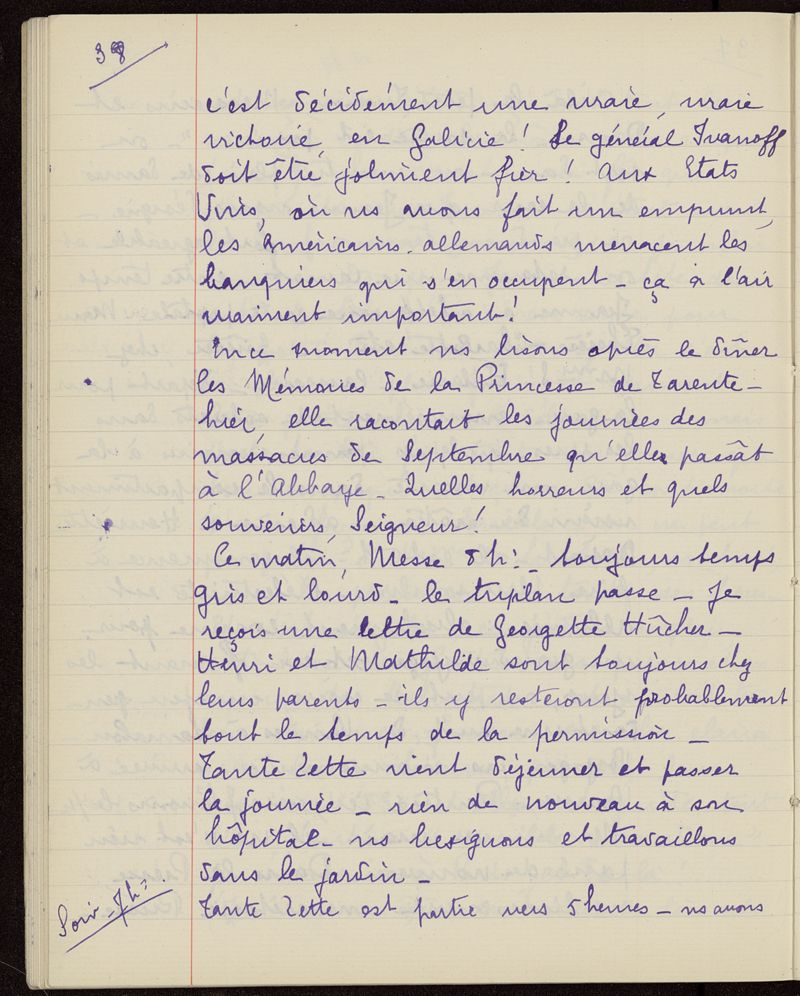 38
c'est décidément une vraie, vraie
victoire, en Galicie! Le général Ivanoff
doit être joliment fier! Aux Etats
Unis, où ns avons fait un emprunt,
les Américains-allemands menacent les
banquiers qui s'en occupent - ça a l'air
vraiment important!
En ce moment ns lisons après le dîner
les Mémoires de la Princesse de Tarente -
hier, elle racontait les journées des
massacres de Septembre qu'elle passât
à l'Abbaye - Quelles horreurs et quels
souvenirs, Seigneur!
Ce matin, Messe 8h: - toujours temps
gris et lourd - le triplan passe - Je
reçois une lettre de Georgette Hücher -
Henri et Mathilde sont toujours chez
leurs parents - ils y resteront probablement
tout le temps de la permission -
Tante Zette vient déjeuner et passer
la journée - rien de nouveau à son
hôpital - ns besignons et travaillons
dans le jardin -
Soir - 7h =
Tante Zette est partie vers 5 heures - ns avons